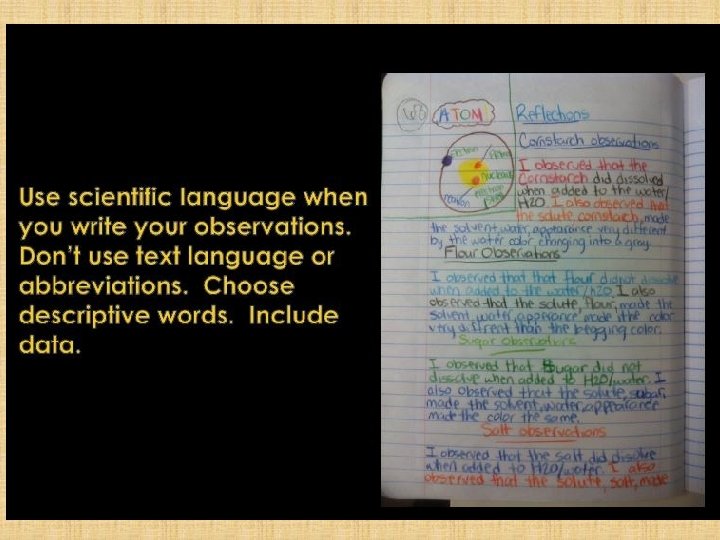 Use scientific language when
you write your observations.
Don't use text language or
abbreviations. Choose
descriptive words. Include
data.
ATOM
Reflections
Cornstarch observations
I observed that the
Cornstarch did dissolved
when added to the water/
H2O. I also observed that
the solute, cornstarch, made
the solvent, water, appearance very different
by the water color changing into a gray.
Flour Observations
I observed that that flour did not dissolve
when added to the water/H2O. I also
observed that the solute, flour, made the
solvent, water, apperance made it the color
very different than the begging color.
Sugar observations
I observed that Sugar did not
dissolve when added to H2O/water. I
also observed that the solute, sugar,
made the solvent, water, appearance
made the color the same.
Salt observations
I observed that the salt did dissolve
when added to H2O/water. I also
observed that the solute, salt, made